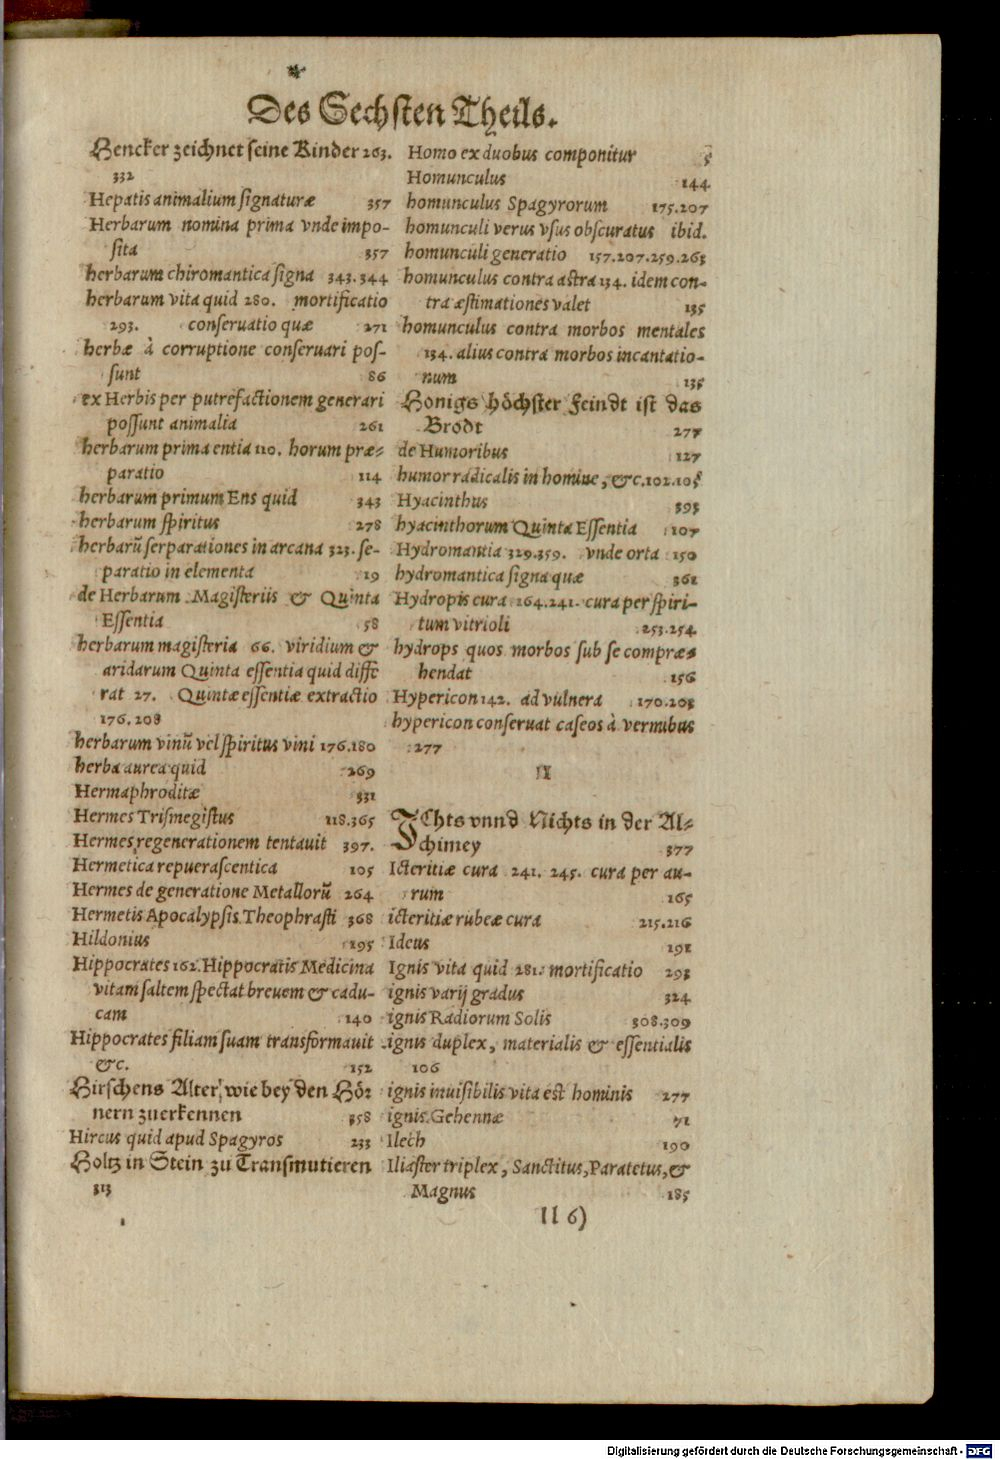 Des Sechsten Theils.
Hencker zeichnet seine Kinder 263.
332
Hepatis animalium signaturæ 357
Herbarum nomina prima vnde impo-
sita 357
herbarum chiromantica signa 343.344
herbarum vita quid 280. mortificatio
293. conseruatio quæ 271
herbæ à corruptione conseruari pos-
sunt 86
ex Herbis per putrefactionem generari
possunt animalia 261
herbarum prima entia 110. horum præ-
paratio 114
herbarum primum Ens quid 343
herbarum spiritus 278
herbarũ serparationes in arcana 323. se-
paratio in elementa 19
de Herbarum Magisteriis & Quinta
Essentia 58
herbarum magisteria 66. viridium &
aridarum Quinta essentia quid diffe
rat 27. Quintæ essentiæ extractio
176.208
herbarum vinũ vel spiritus vini 176.180
herba aurea quid 269
Hermaphroditæ 331
Hermes Trismegistus 118.365
Hermes regenerationem tentauit 397.
Hermetica repuerascentica 105
Hermes de generatione Metallorũ 264
Hermetis Apocalypsis Theophrasti 368
Hildonius 195
Hippocrates 162. Hippocratis Medicina
vitam saltem spectat breuem & cadu-
cam 140
Hippocrates filiam suam transformauit
&c. 152
Hirschens Alter, wie bey den Hör
nern zuerkennen 358
Hircus quid apud Spagyros 233
Holtz in Stein zu Transmutieren
313
Homo ex duobus componitur 5
Homunculus 144
homunculus Spagyrorum 175.207
homunculi verus vsus obscuratus ibid.
homunculi generatio 157.207.259.263
homunculus contra astra 134. idem con-
tra æstimationes valet 135
homunculus contra morbos mentales
134. alius contra morbos incantatio-
num 135
Honigs höchster Feindt ist das
Brodt 277
de Humoribus 127
humor radicalis in homine, &c. 102.105
Hyacinthus 393
hyacinthorum Quinta Essentia 107
Hydromantia 329.359. vnde orta 150
hydromantica signa quæ 361
Hydropis cura 164.241. cura per spiri-
tum vitrioli 253.254
hydrops quos morbos sub se compræ-
hendat 156
Hypericon 142. ad vulnera 170.203
hypericon conseruat caseos à vermibus
277
I
IChts vnnd Nichts in der Al-
chimey 377
Icteritiæ cura 241. 245. cura per au-
rum 165
icteritiæ rubeæ cura 215.216
Ideus 191
Ignis vita quid 281. mortificatio 293
ignis varij gradus 324
ignis Radiorum Solis 308.309
ignis duplex, materialis & essentialis
106
ignis inuisibilis vita est hominis 277
ignis Gehennæ 71
Ilech 190
Iliaster triplex, Sanctitus, Paratetus, &
Magnus 185
ll 6)
Digitalisierung gefördert durch die Deutsche Forschungsgemeinschaft - DFG